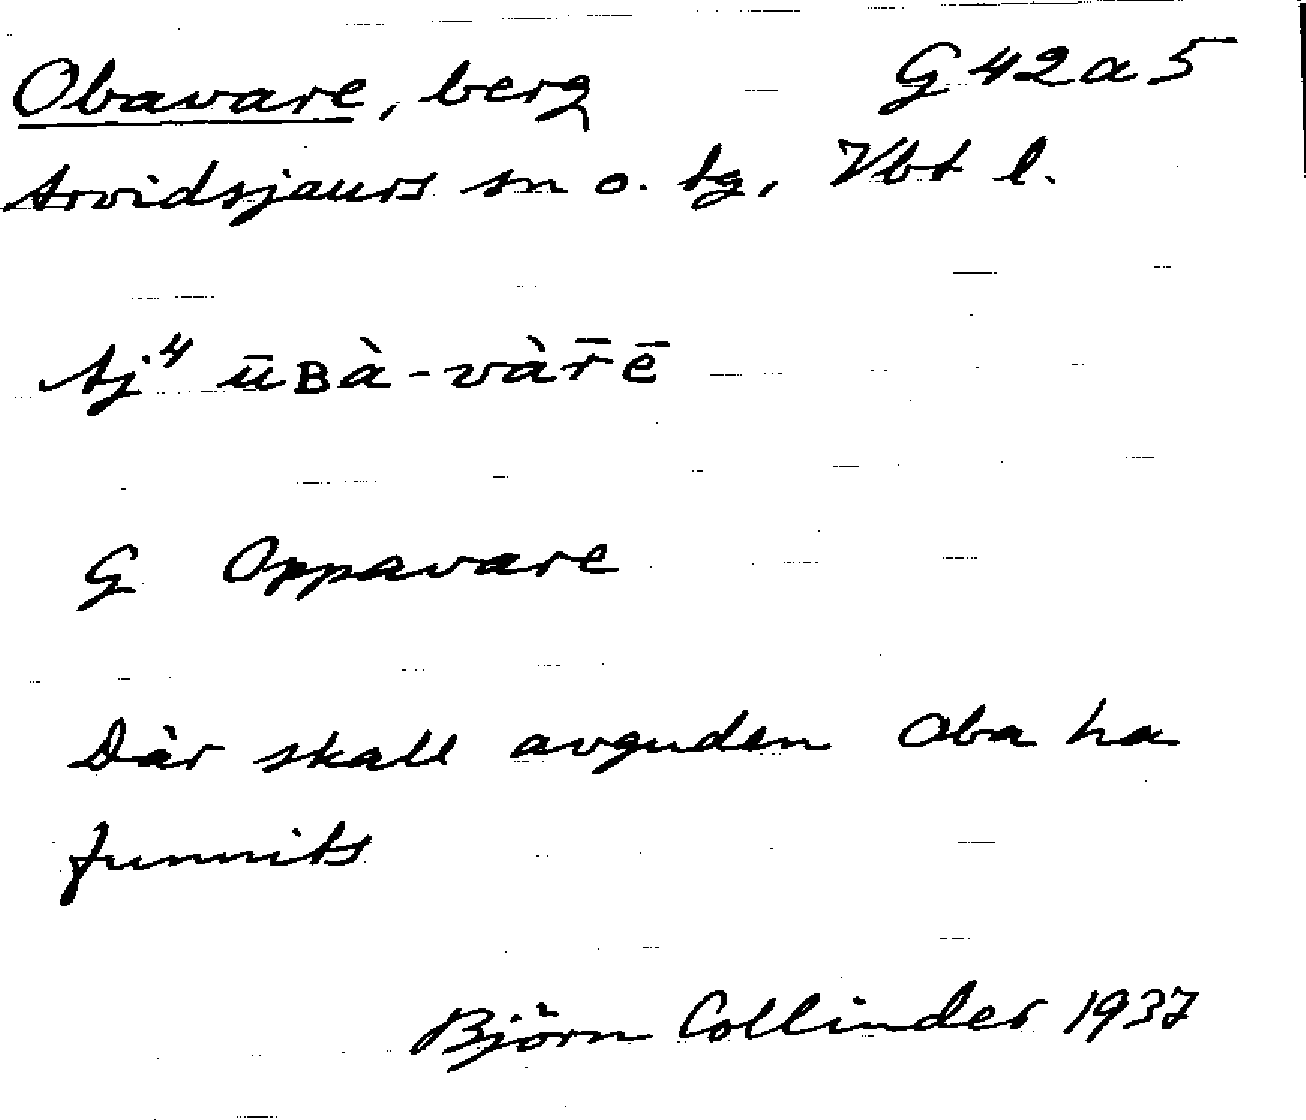 Obavare, berg G42a5
Arvidsjaurs sn o. tg, Vbt l.
Aj⁴ ūʙà-vàr̄ē
G Oppavare
Där skall avguden Oba ha
funnits
Björn Collinder 1937